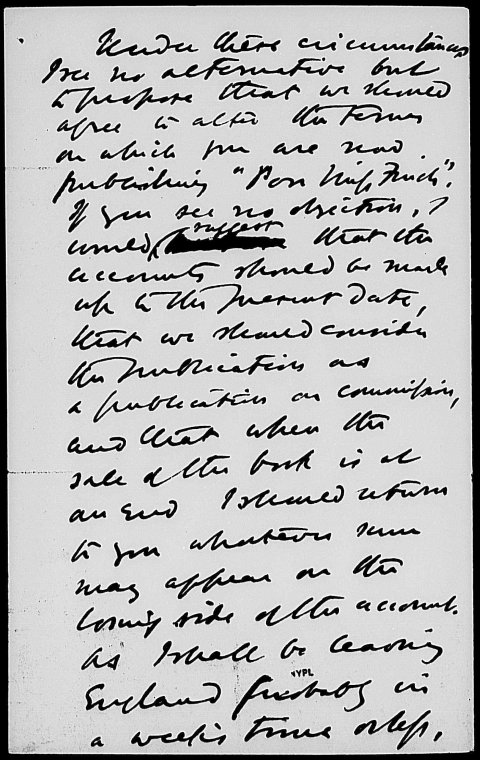 Under these circumstances
I see no alternative but
to propose that we should
agree to alter the terms
on which you are now
publishing "Poor Miss Finch".
If you see no objection, I
would suggest that the
accounts should be made
up to the present date,
that we should consider
the publication as
a publication on commission,
and that when the
sale of the book is at
an end I should return
to you whatever sum
may appear on the
losing side of the account.
As I shall be leaving
England probably in
NYPL
a week's time or less,